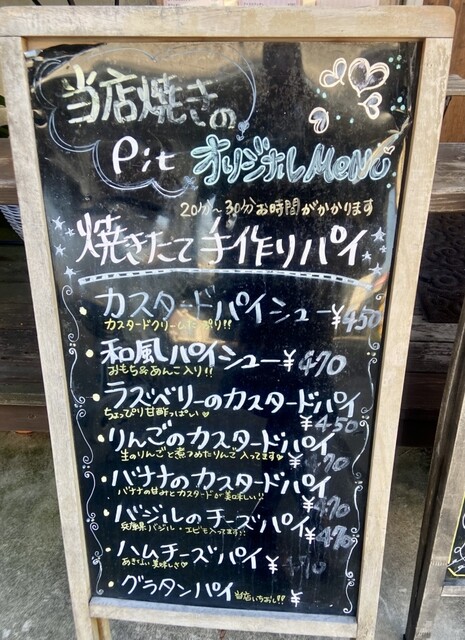 当店焼きの
Pit オリジナルMeNu
20分~30分お時間がかかります
焼きたて手作りパイ
・カスタードパイシュー ¥450
カスタードクリームたっぷり!!
・和風パイシュー ¥470
おもち&あんこ入り!!
・ラズベリーのカスタードパイ
ちょっぴり甘酢っぱい♡ ¥450
・りんごのカスタードパイ
生のりんごと煮つめたりんご入ってます♡ ¥470
・バナナのカスタードパイ
バナナの甘みとカスタードが美味しい!! ¥470
・バジルのチーズパイ ¥470
兵庫県バジル・エビも入ってます!!
・ハムチーズパイ ¥470
美味しさ♡
・グラタンパイ 当店いちおし!! ¥